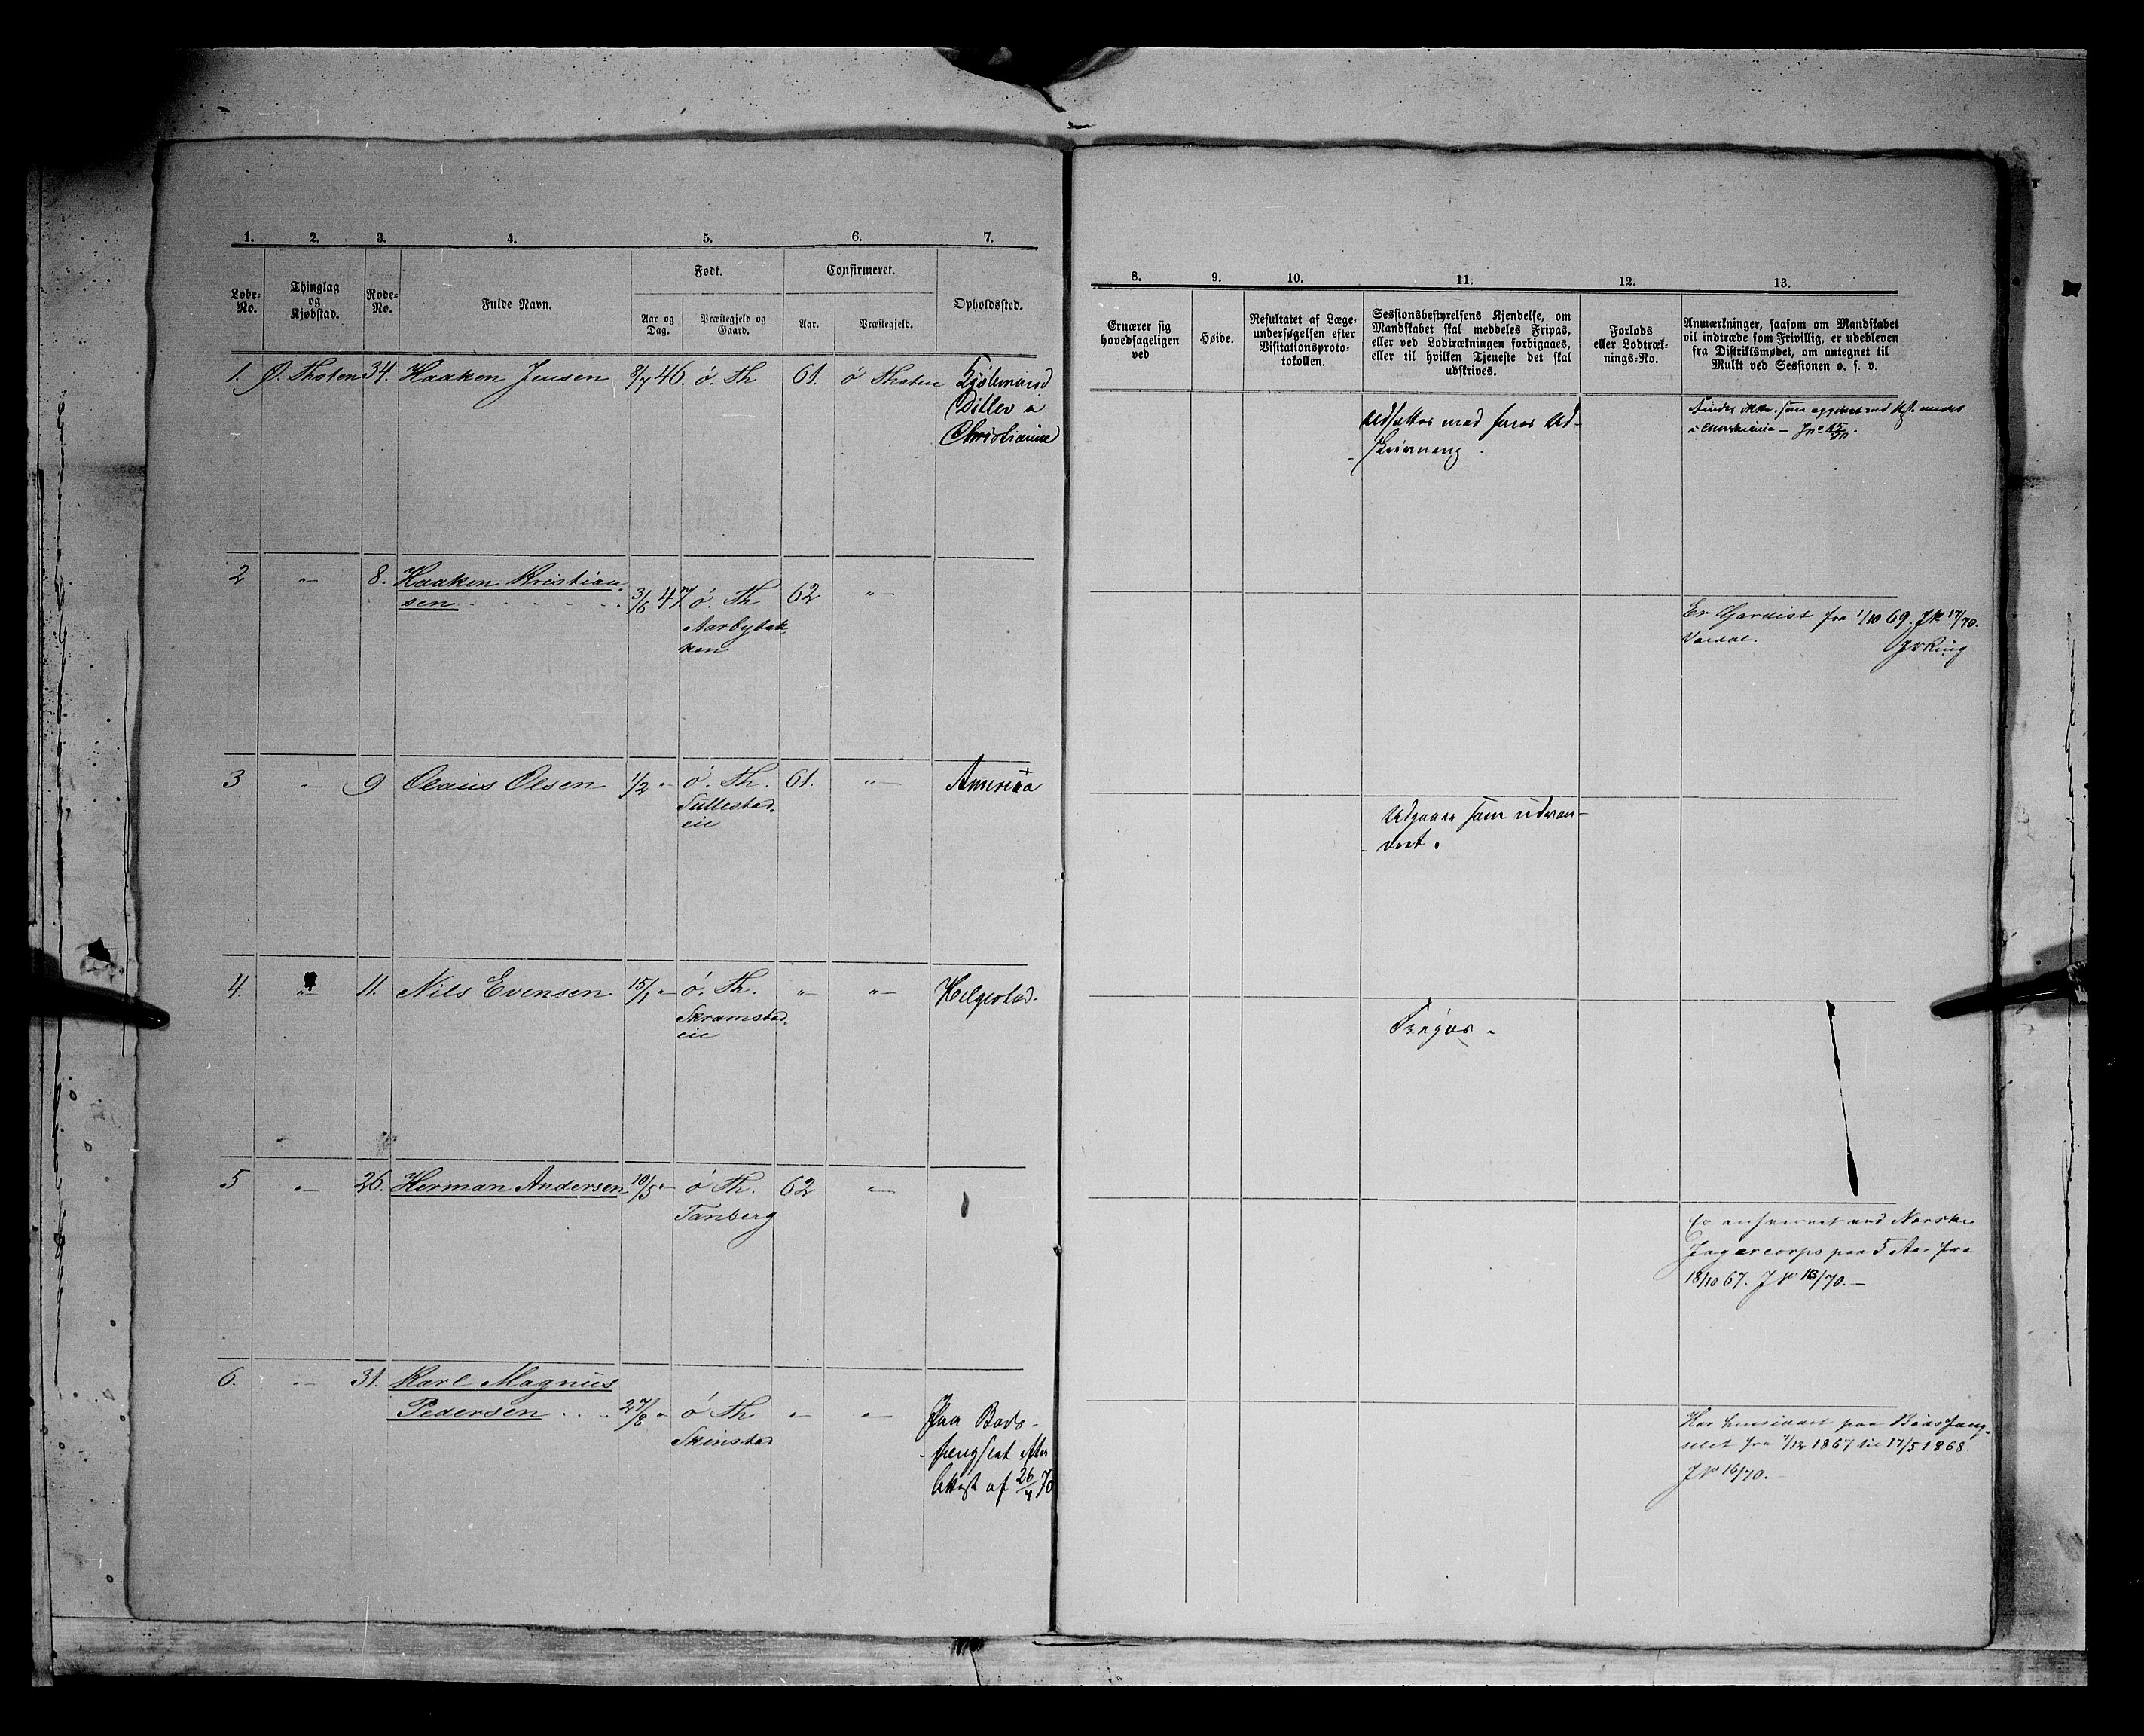 1. 2. 3. 4. 5. 6. 7.
Løbe-No. Thinglag og Kjøbstad. Rode-No. Fulde Navn. Født. Confirmeret. Opholdssted.
Aar og Dag. Præstegjeld og Gaard. Aar. Præstegjeld.
1. Ø. Thoten 34. Haaken Jensen 8/7 46. ö. Th 61. ö Thoten Kjøbmand
Ditlev i
Christiania
2 " 8. Haaken Kristian-
sen 3/6 47. ö. Th 62 "
Aarbybak-
ken
3 " 9 Olaus Olsen 1/2 " ö. Th. 61. " America
Tullestad-
eie
4. " 11. Nils Evensen 15/1 " ö. Th. " " Helgestad.
Skramstad-
eie
5 " 26. Herman Andersen 10/5 " ö Th. 62 "
Tanberg
6. " 31. Karl Magnus
Pedersen 27/8 " ö Th " " Paa Bods-
Skinstad
fængslet efter
Attest af 26/4 70
8. 9. 10. 11. 12. 13.
Ernærer sig hovedsageligen ved
Høide.
Resultatet af Læge-
undersøgelsen efter
Visitationsproto-
tokollen.
Sessionsbestyrelsens Kjendelse, om
Mandskabet skal meddeles Fripas,
eller ved Lodtrækningen forbigaaes,
eller til hvilken Tjeneste det skal
udskrives.
Forlods
eller Lodtræk-
nings-No.
Anmærkninger, saasom om Mandskabet
vil indtræde som Frivillig, er udebleven
fra Distriktsmødet, om antegnet til
Mulkt ved Sessionen o. s. v.
Udsættes med hans Ud-
skrivning.
Findes ikke som opgivet ved
Er Gardist fra 1/10 69. JN 17/70.
Vardal.
Udgaaer som udvan-
dret.
Fripas.
Er anhvervet ved Norske
Jægercorps paa 5 Aar fra
18/10 67. JNo 13/70.
Har henseddet paa Bodsfæng-
slet fra 7/12 1867 til 17/5 1868.
JNo 16/70.